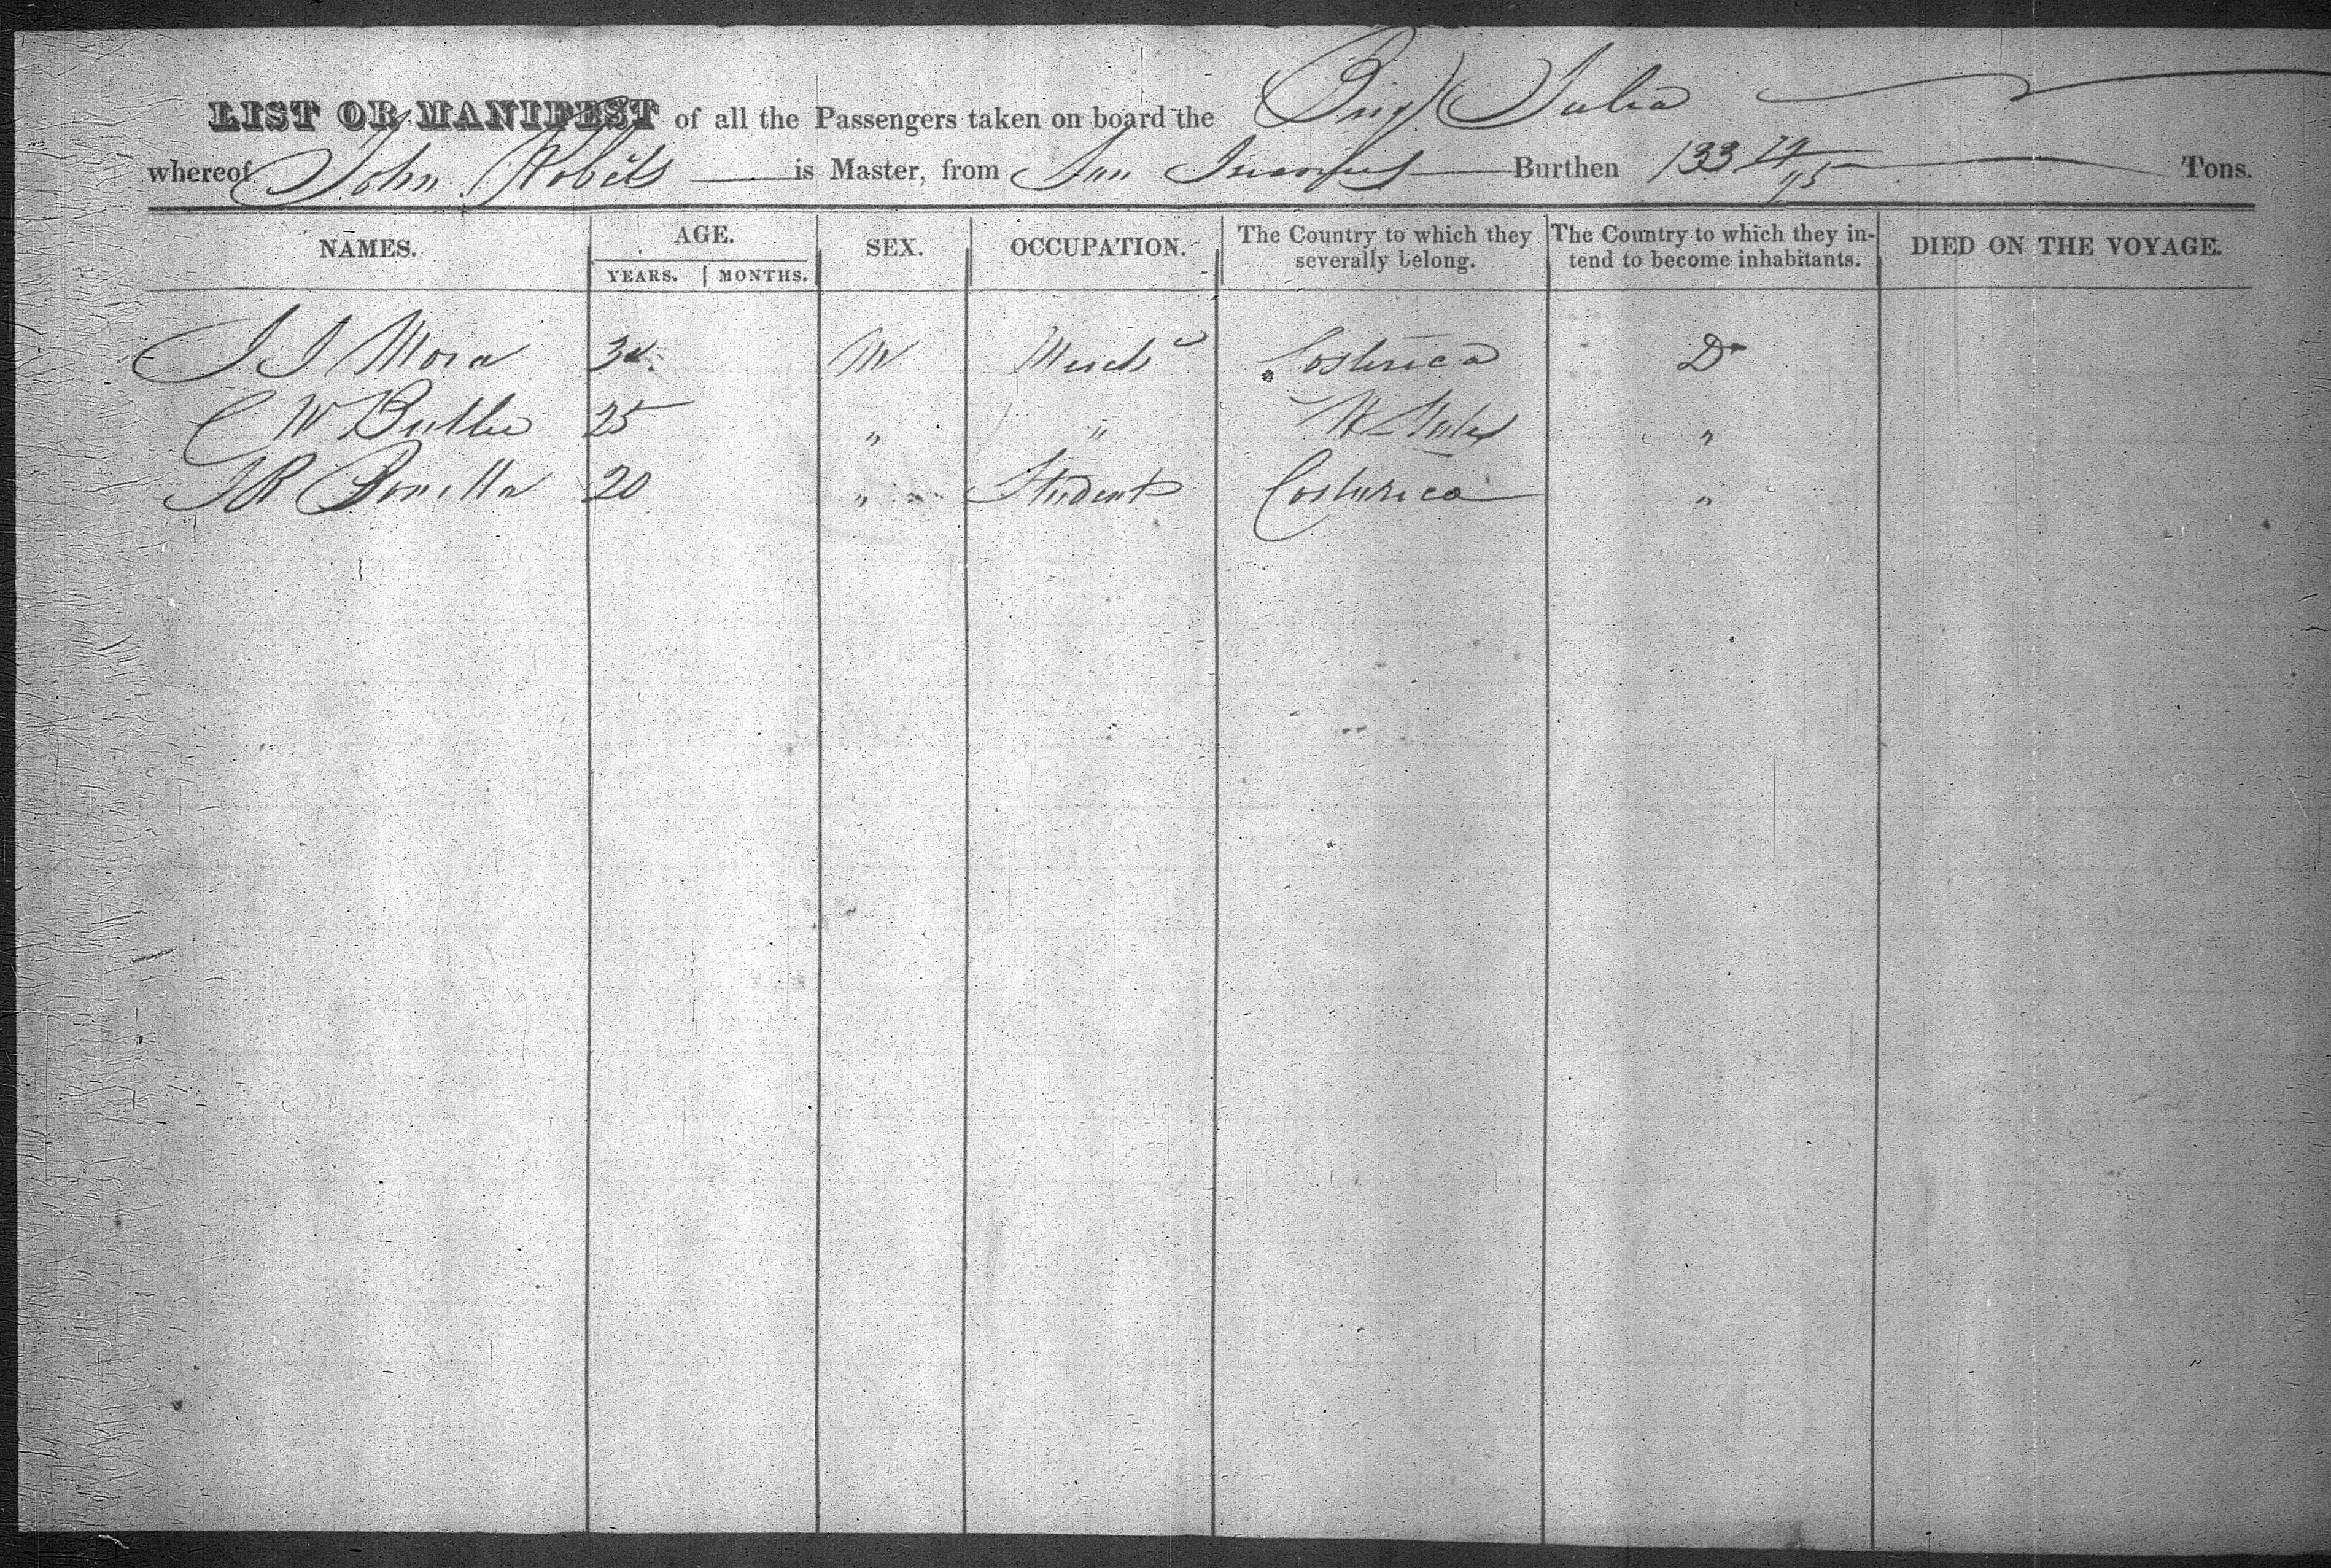 LIST OR MANIFEST of all the Passengers taken on board the Brig Julia
whereof John Robets is Master, from San Burthen 133 74/95 Tons.
NAMES. AGE. SEX. OCCUPATION. The Country to which they severally belong. The Country to which they in-tend to become inhabitants. DIED ON THE VOYAGE.
YEARS. MONTHS.
J J Mora M Merch Costerica Do
C W Butler 25 " " "
J R Bonilla 20 " Student Costerica "